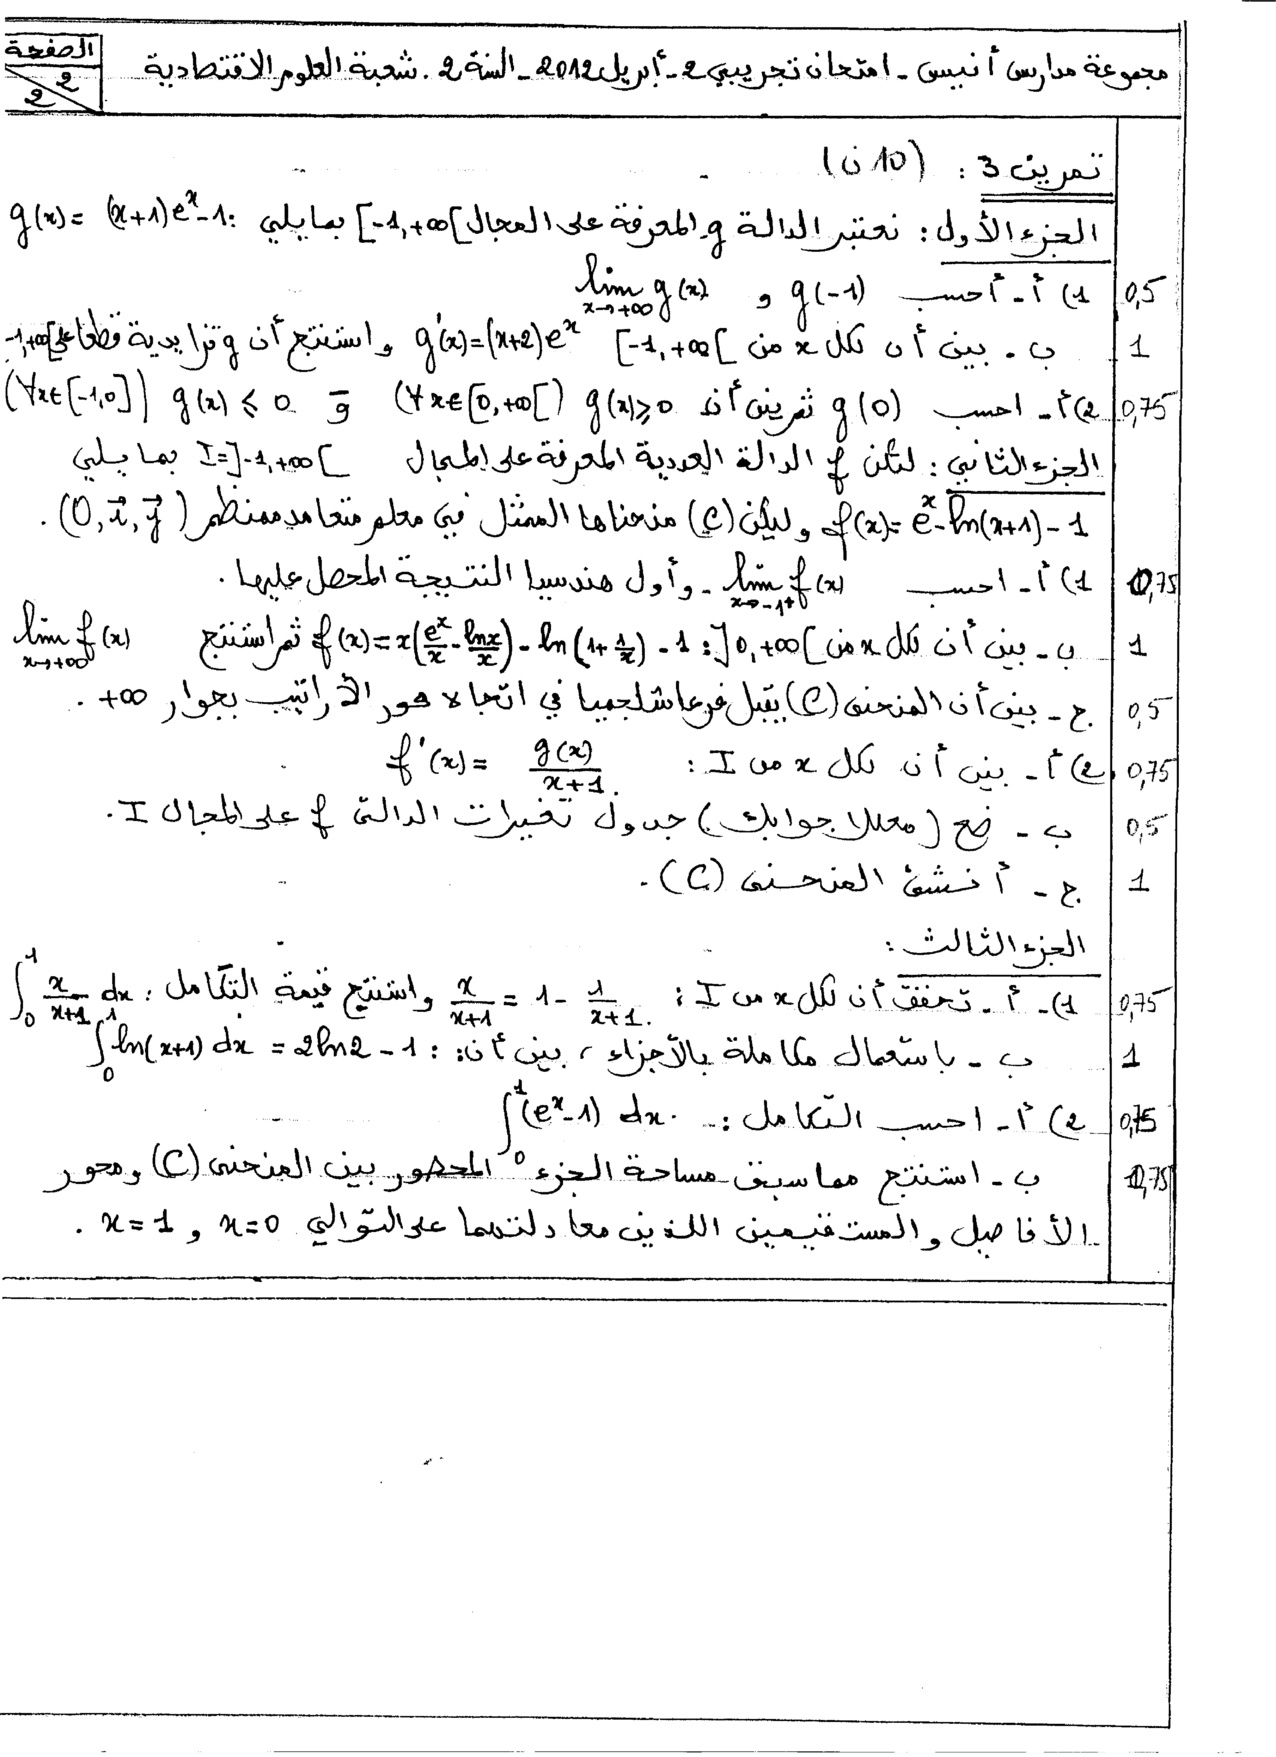 مجموعة مدارس أنيس - امتحان تجريبي 2 - أبريل 2012 - السنة 2. شعبة العلوم الاقتصادية
الصفحة
2
2
تمرين 3 : (10 ن)
الجزء الأول : نعتبر الدالة g المعرفة على المجال [-1,+∞[ بمايلي : g(x)= (x+1)e^x-1
0,5 1) أ - أحسب g(-1) و lim_{x→+∞} g(x)
1 ب - بين أن لكل x من [-1,+∞[ g'(x)=(x+2)e^x واستنتج أن g تزايدية قطعا على [-1,+∞[
0,75 2) أ - احسب g(0) ثم بين أن g(x)≥0 (∀x∈[0,+∞[) و g(x)≤0 (∀x∈[-1,0])
الجزء الثاني : لتكن f الدالة العددية المعرفة على المجال I=]-1,+∞[ بمايلي
f(x)=e^x-ln(x+1)-1 وليكن (C) منحناها الممثل في معلم متعامد ممنظم (O,i⃗,j⃗).
0,75 1) أ - احسب lim_{x→-1+} f(x) - وأول هندسيا النتيجة المحصل عليها.
1 ب - بين أن لكل x من ]0,+∞[ : f(x)=x(e^x/x - lnx/x)-ln(1+1/x)-1 ثم استنتج lim_{x→+∞} f(x)
0,5 ج - بين أن المنحنى (C) يقبل فرعا شلجميا في اتجاه محور الأراتيب بجوار +∞.
0,75 2) أ - بين أن لكل x من I : f'(x)= g(x)/(x+1)
0,5 ب - ضع (معللا جوابك) جدول تغيرات الدالة f على المجال I.
1 ج - أنشئ المنحنى (C).
الجزء الثالث :
0,75 1) - أ - تحقق أن لكل x من I : x/(x+1) = 1 - 1/(x+1) واستنتج قيمة التكامل : ∫_0^1 x/(x+1) dx
1 ب - باستعمال مكاملة بالأجزاء، بين أن : ∫_0^1 ln(x+1) dx = 2ln2-1
0,75 2) أ - احسب التكامل : ∫_0^1 (e^x-1) dx.
0,75 ب - استنتج مما سبق مساحة الجزء المحصور بين المنحنى (C) ومحور
الأفاصيل والمستقيمين اللذين معادلتهما على التوالي x=0 و x=1.